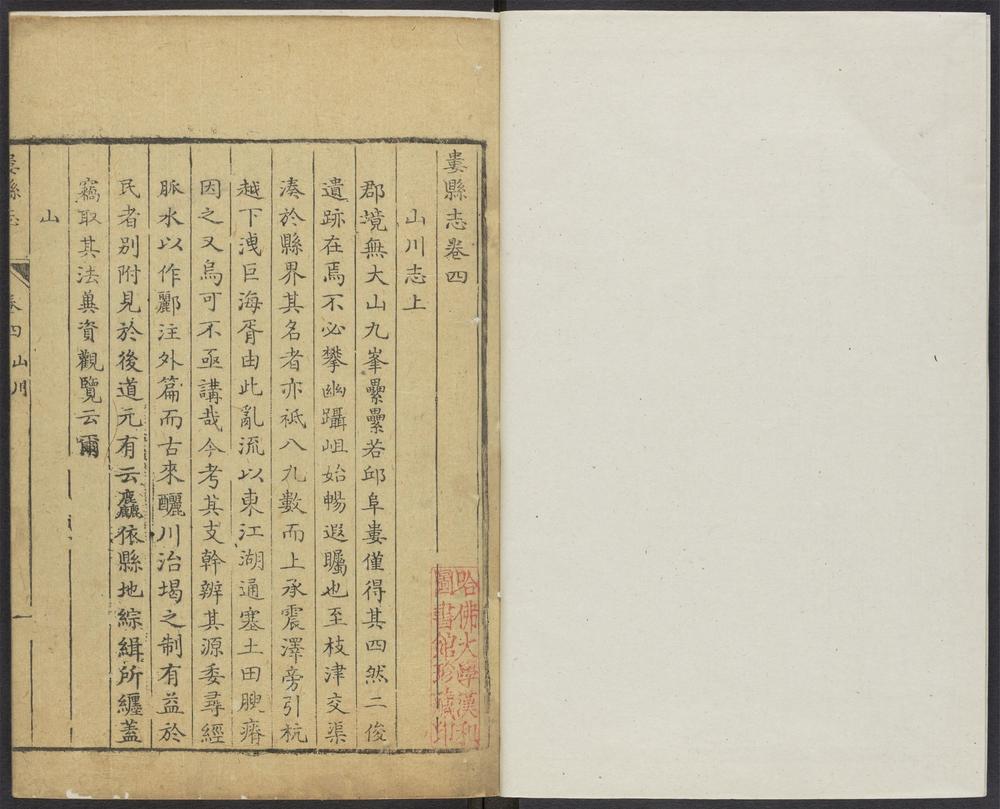 婁縣志卷四
山川志上
郡境無大山九峯纍纍若邱阜婁僅得其四然二俊
遺跡在焉不必攀幽躡岨始暢遐矚也至枝津交渠
湊於縣界其名者亦祗八九數而上承震澤旁引杭
越下洩巨海胥由此亂流以東江湖通塞土田腴瘠
因之又烏可不亟講哉今考其支幹辨其源委尋經
脈水以作酈注外篇而古來釃川治堨之制有益於
民者別附見於後道元有云麤依縣地綜緝所纏蓋
竊取其法兾資觀覽云爾
山
婁縣志
卷四山川
一
哈佛大學漢和
圖書館珍藏印